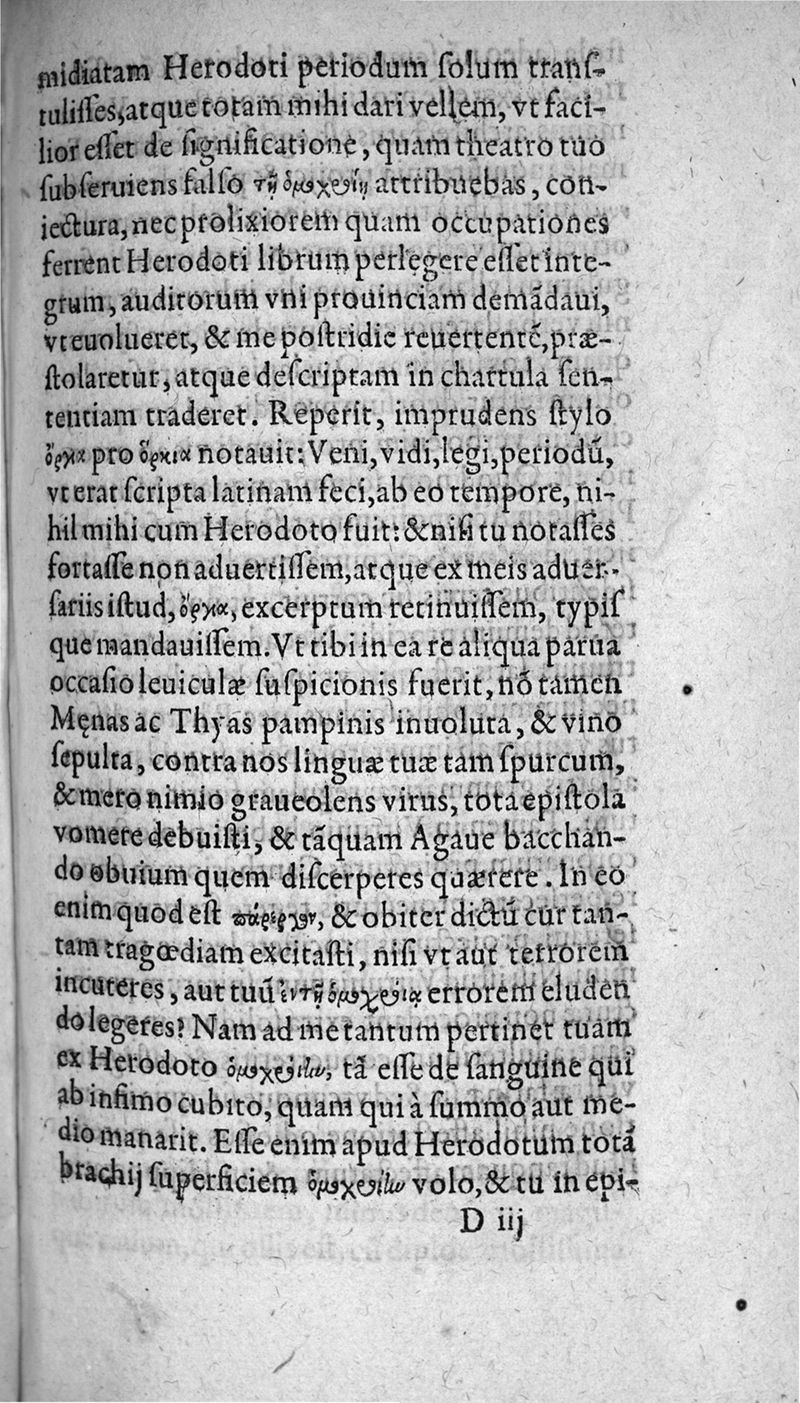 midiatam Herodoti periodum ſolum tranſ-
tuliſſes, atque totam mihi dari vellem, vt faci-
lior eſſet de ſignificatione, quam theatro tuo
ſubſeruiens falſo τῇ ὁμοχροίῃ attribuebas, con-
iectura, nec prolixiorem quam occupationes
ferrent Herodoti librum perlegere eſſet inte-
grum, auditorum vni prouinciam demãdaui,
vt euolueret, & me poſtridie reuertentẽ, præ-
ſtolaretur, atque deſcriptam in chartula ſen-
tentiam traderet. Reperit, imprudens ſtylo
ὅρκα pro ὅρκια notauit: Veni, vidi, legi, periodũ,
vt erat ſcripta latinam feci, ab eo tempore, ni-
hil mihi cum Herodoto fuit: & niſi tu notaſſes
fortaſſe non aduertiſſem, atque ex meis aduer-
ſariis iſtud, ὅρκα, excerptum retinuiſſem, typiſ
que mandauiſſem. Vt tibi in ea re aliqua parua
occaſio leuiculæ ſuſpicionis fuerit, nõ tamen
Męnas ac Thyas pampinis inuoluta, & vino
ſepulta, contra nos linguæ tuæ tam ſpurcum,
& mero nimio graueolens virus, tota epiſtola
vomere debuiſti, & tãquam Agaue bacchan-
do obuium quem diſcerperes quærere. In eo
enim quod eſt πάρεργον, & obiter dictũ cur tan-
tam tragœdiam excitaſti, niſi vt aut terrorem
incuteres, aut tuũ ἐν τῇ ὁμοχροίᾳ errorem eluden
do legeres? Nam ad me tantum pertinet tuam
ex Herodoto ὁμοχροίην, tã eſſe de ſanguine qui
ab infimo cubito, quam qui à ſummo aut me-
dio manarit. Eſſe enim apud Herodotum totã
brachij ſuperficiem ὁμοχροίην volo, & tu in epi-
D iij